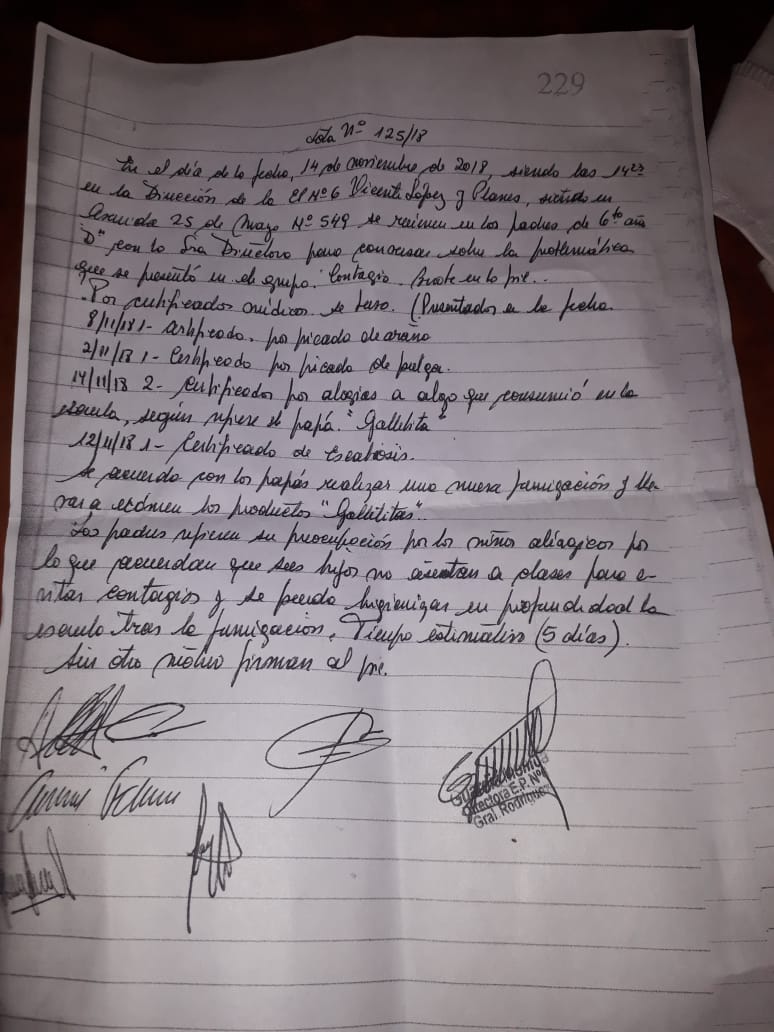 229
Nota Nº 125/18
En el día de la fecha, 14 de noviembre de 2018, siendo las 14
en la Dirección de la EP Nº 6 Vicente López y Planes, sito en
Avenida 25 de Mayo Nº 549 se reúnen los padres de 6to año
D" con la Sra Directora para conversar sobre la problemática
que se presentó en el grupo. Contagio. Brote en la piel.
Por certificados médicos se tuvo. (Presentados en la fecha
8/11/18 1- Certificado por picado de araña
2/11/18 1- Certificado por picado de pulga.
14/11/18 2- Certificados por alergias a algo que consumió en la
escuela, según refiere el papá. "Galletita"
12/11/18 1- Certificado de Escabiosis.
Se acuerda con los papás realizar una nueva fumigación y lle
var a exámen los productos "Galletitas".
Los padres refieren su preocupación por los niños alérgicos por
lo que acuerdan que sus hijos no asistan a clases para e-
vitar contagios y se pueda higienizar en profundidad la
escuela tras la fumigación. Tiempo estimativo (5 días).
Sin otro motivo firman al pie.
Directora E.P. Nº
Gral. Rodríguez